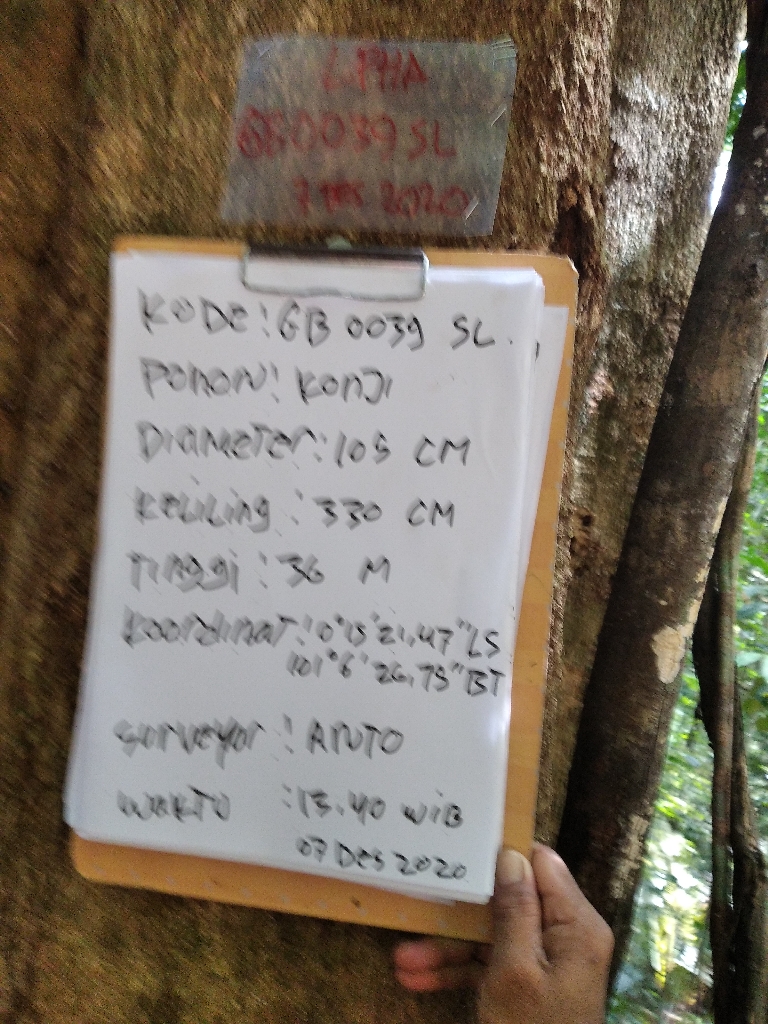 LPHA
GB0039 SL
7 DES 2020
KODE : GB 0039 SL
POHON : KONJI
DIAMETER : 105 CM
KELILING : 330 CM
TINGGI : 36 M
KOORDINAT : 0°15'21,47" LS
101°6'26,75" BT
SURVEYOR : ANTO
WAKTU : 13.40 WIB
07 DES 2020